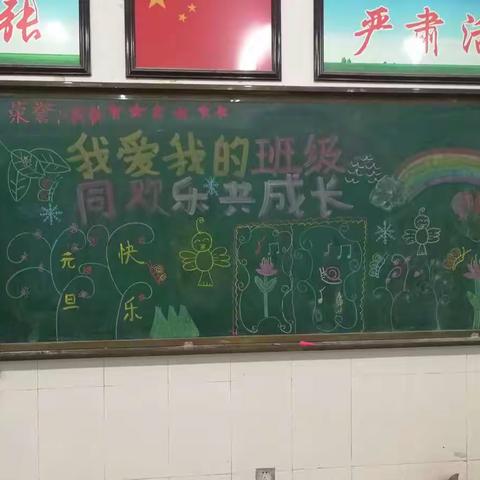 张
严肃活
荣誉
我爱我的班级
同欢乐共成长
元旦
快乐